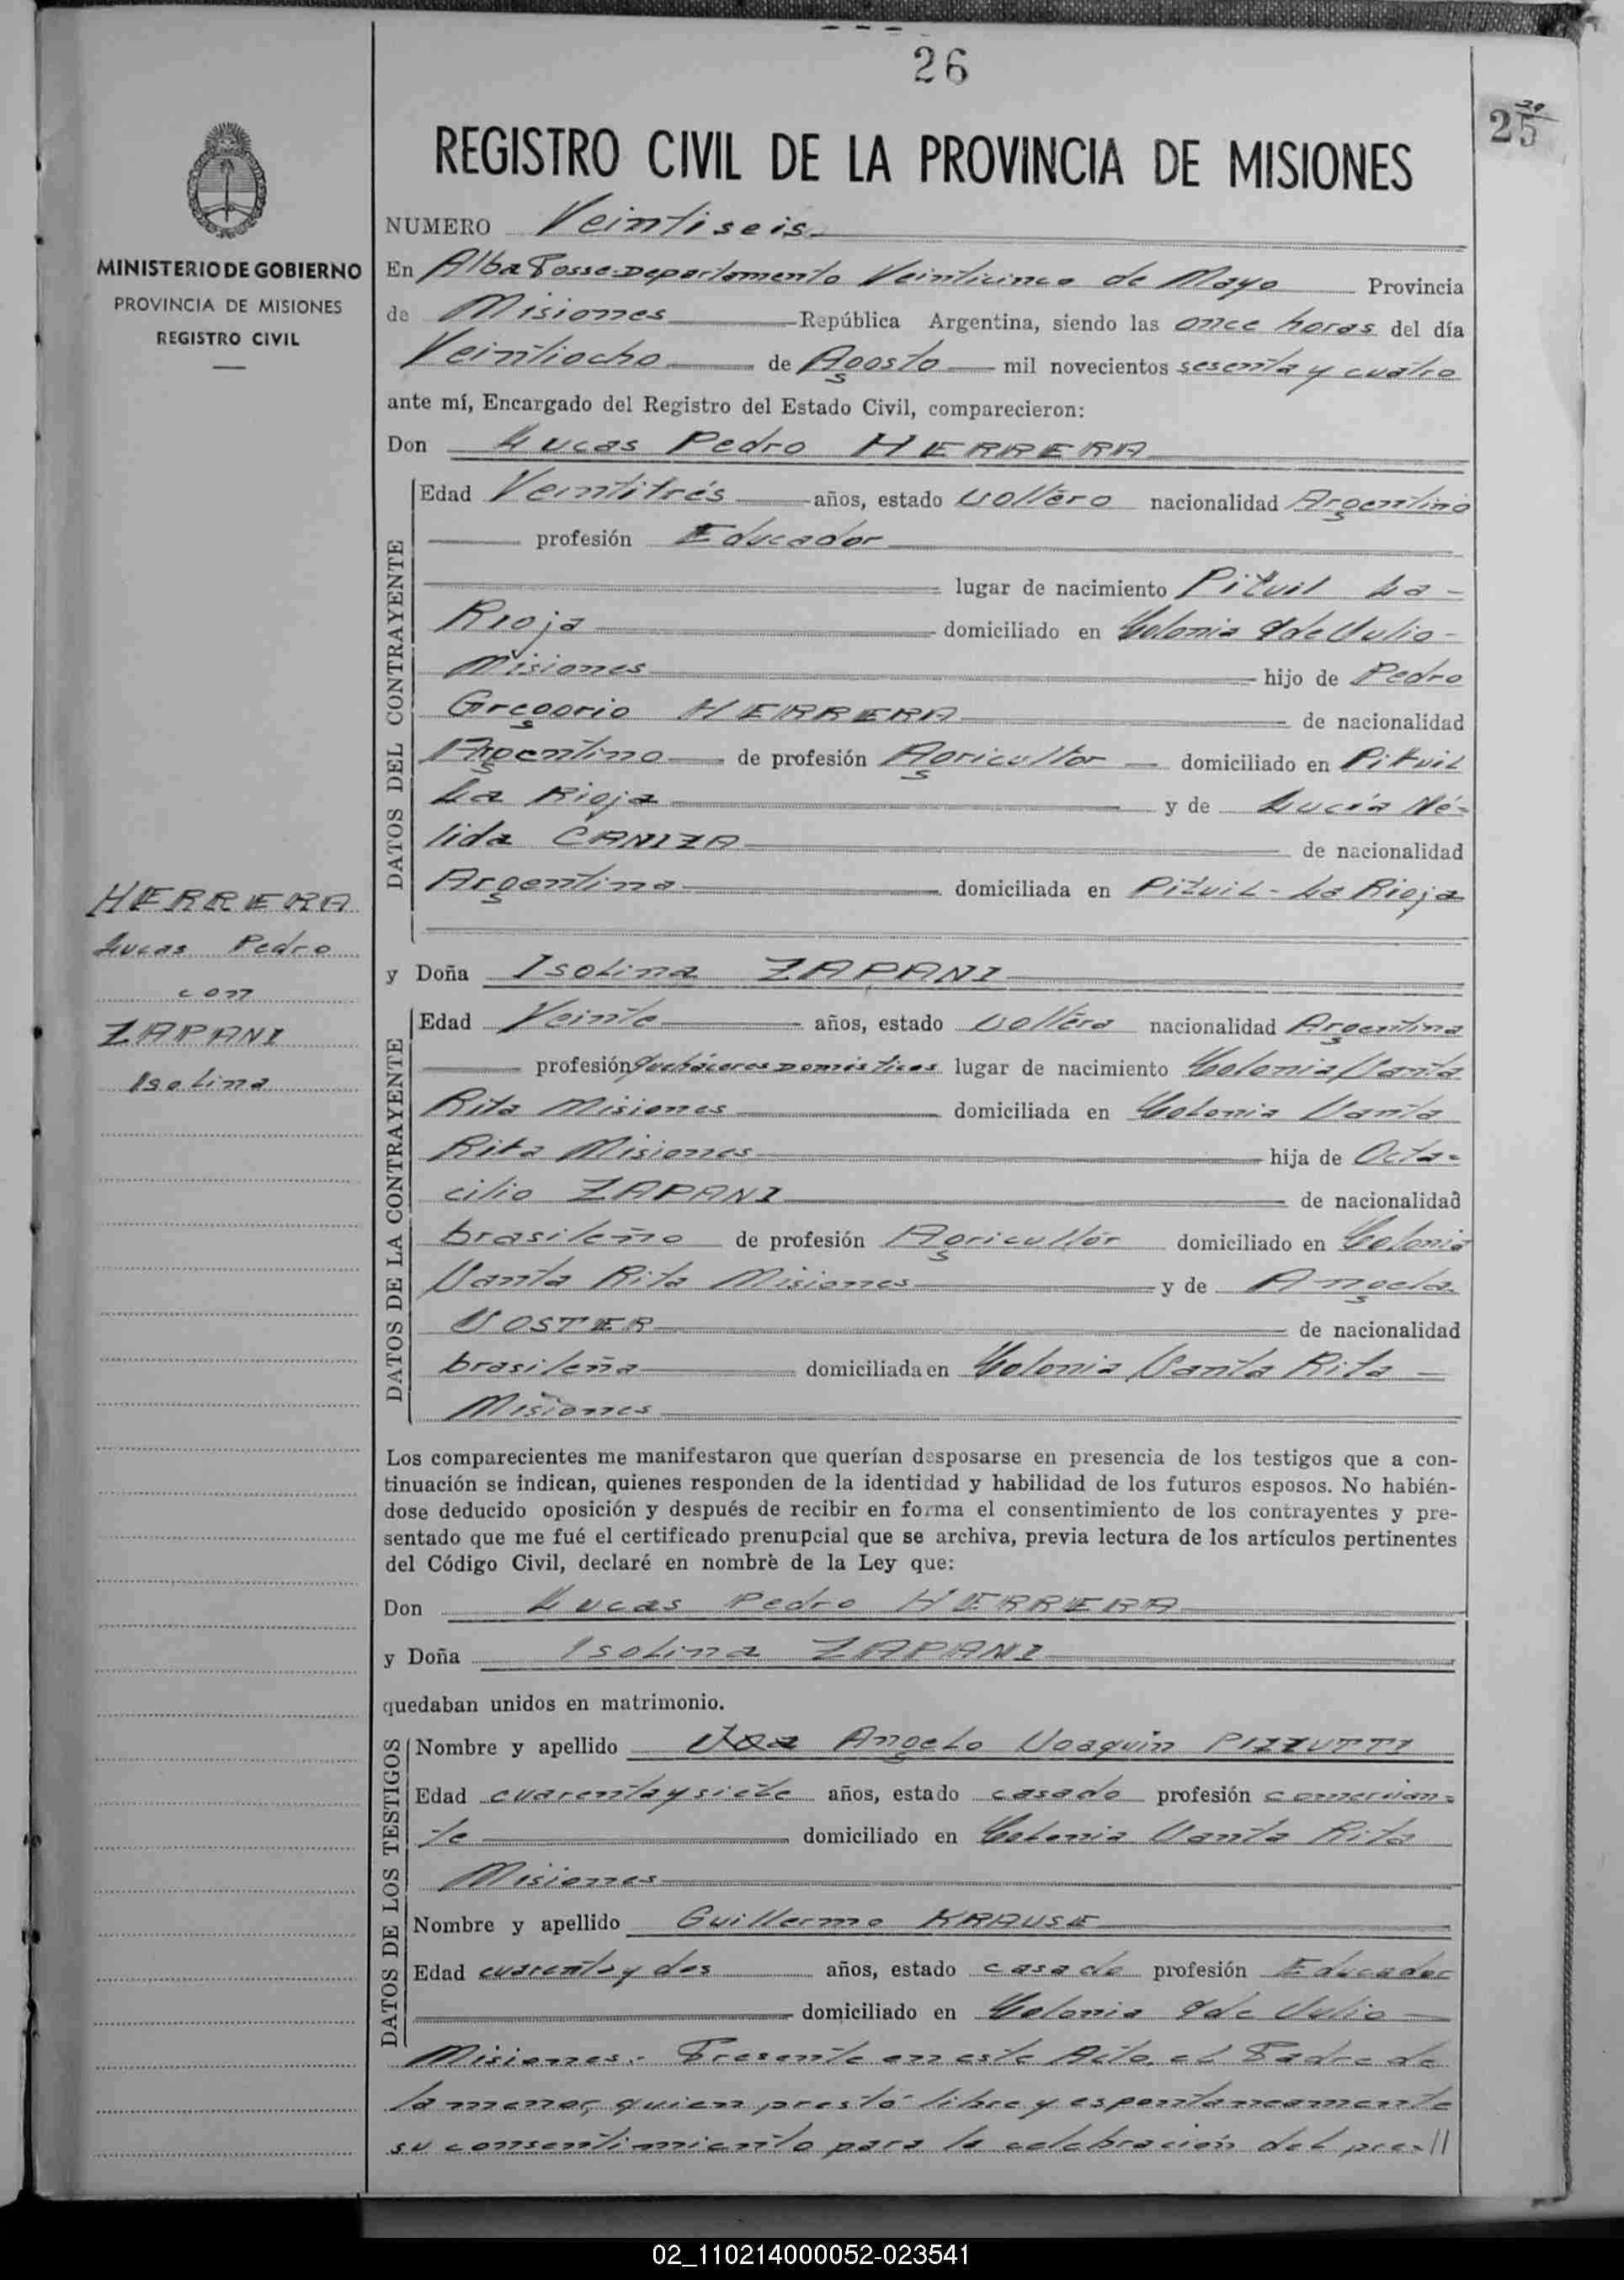 26
29
25
REGISTRO CIVIL DE LA PROVINCIA DE MISIONES
MINISTERIO DE GOBIERNO
PROVINCIA DE MISIONES
REGISTRO CIVIL
NUMERO Veintiseis
En Alba Posse-Departamento Veinticinco de Mayo Provincia
de Misiones República Argentina, siendo las once horas del día
Veintiocho de Agosto mil novecientos sesenta y cuatro
ante mí, Encargado del Registro del Estado Civil, comparecieron:
Don Lucas Pedro HERRERA
DATOS DEL CONTRAYENTE
Edad Veintitrés años, estado soltero nacionalidad Argentino
profesión Educador
lugar de nacimiento Pituil La-
Rioja domiciliado en Colonia 9 de Julio-
Misiones hijo de Pedro
Gregorio HERRERA de nacionalidad
Argentino de profesión Agricultor domiciliado en Pituil
La Rioja y de Lucía Né-
lida CANIZA de nacionalidad
Argentina domiciliada en Pituil - La Rioja
HERRERA
Lucas Pedro
con
ZAPANI
Isolina
y Doña Isolina ZAPANI
DATOS DE LA CONTRAYENTE
Edad Veinte años, estado soltera nacionalidad Argentina
profesión quehàceres Domésticos lugar de nacimiento Colonia Santa
Rita Misiones domiciliada en Colonia Santa
Rita Misiones hija de Octa-
cilio ZAPANI de nacionalidad
brasileño de profesión Agricultór domiciliado en Colonia
Santa Rita Misiones y de Angela
SOSTER de nacionalidad
brasileña domiciliada en Colonia Santa Rita
Misiones
Los comparecientes me manifestaron que querían desposarse en presencia de los testigos que a con-
tinuación se indican, quienes responden de la identidad y habilidad de los futuros esposos. No habién-
dose deducido oposición y después de recibir en forma el consentimiento de los contrayentes y pre-
sentado que me fué el certificado prenupcial que se archiva, previa lectura de los artículos pertinentes
del Código Civil, declaré en nombre de la Ley que:
Don Lucas Pedro HERRERA
y Doña Isolina ZAPANI
quedaban unidos en matrimonio.
DATOS DE LOS TESTIGOS
Nombre y apellido Angelo Joaquin PIZZUTTI
Edad cuarenta y siete años, estado casado profesión comercian-
te domiciliado en Colonia Santa Rita
Misiones
Nombre y apellido Guillermo KRAUSE
Edad cuarenta y dos años, estado casado profesión Educador
domiciliado en Colonia 9 de Julio
Misiones.- Presente en este Acto, el Padre de
la menor, quien prestó libre y espontaneamente
su consentimiento para la celebración del pres//
02_110214000052-023541